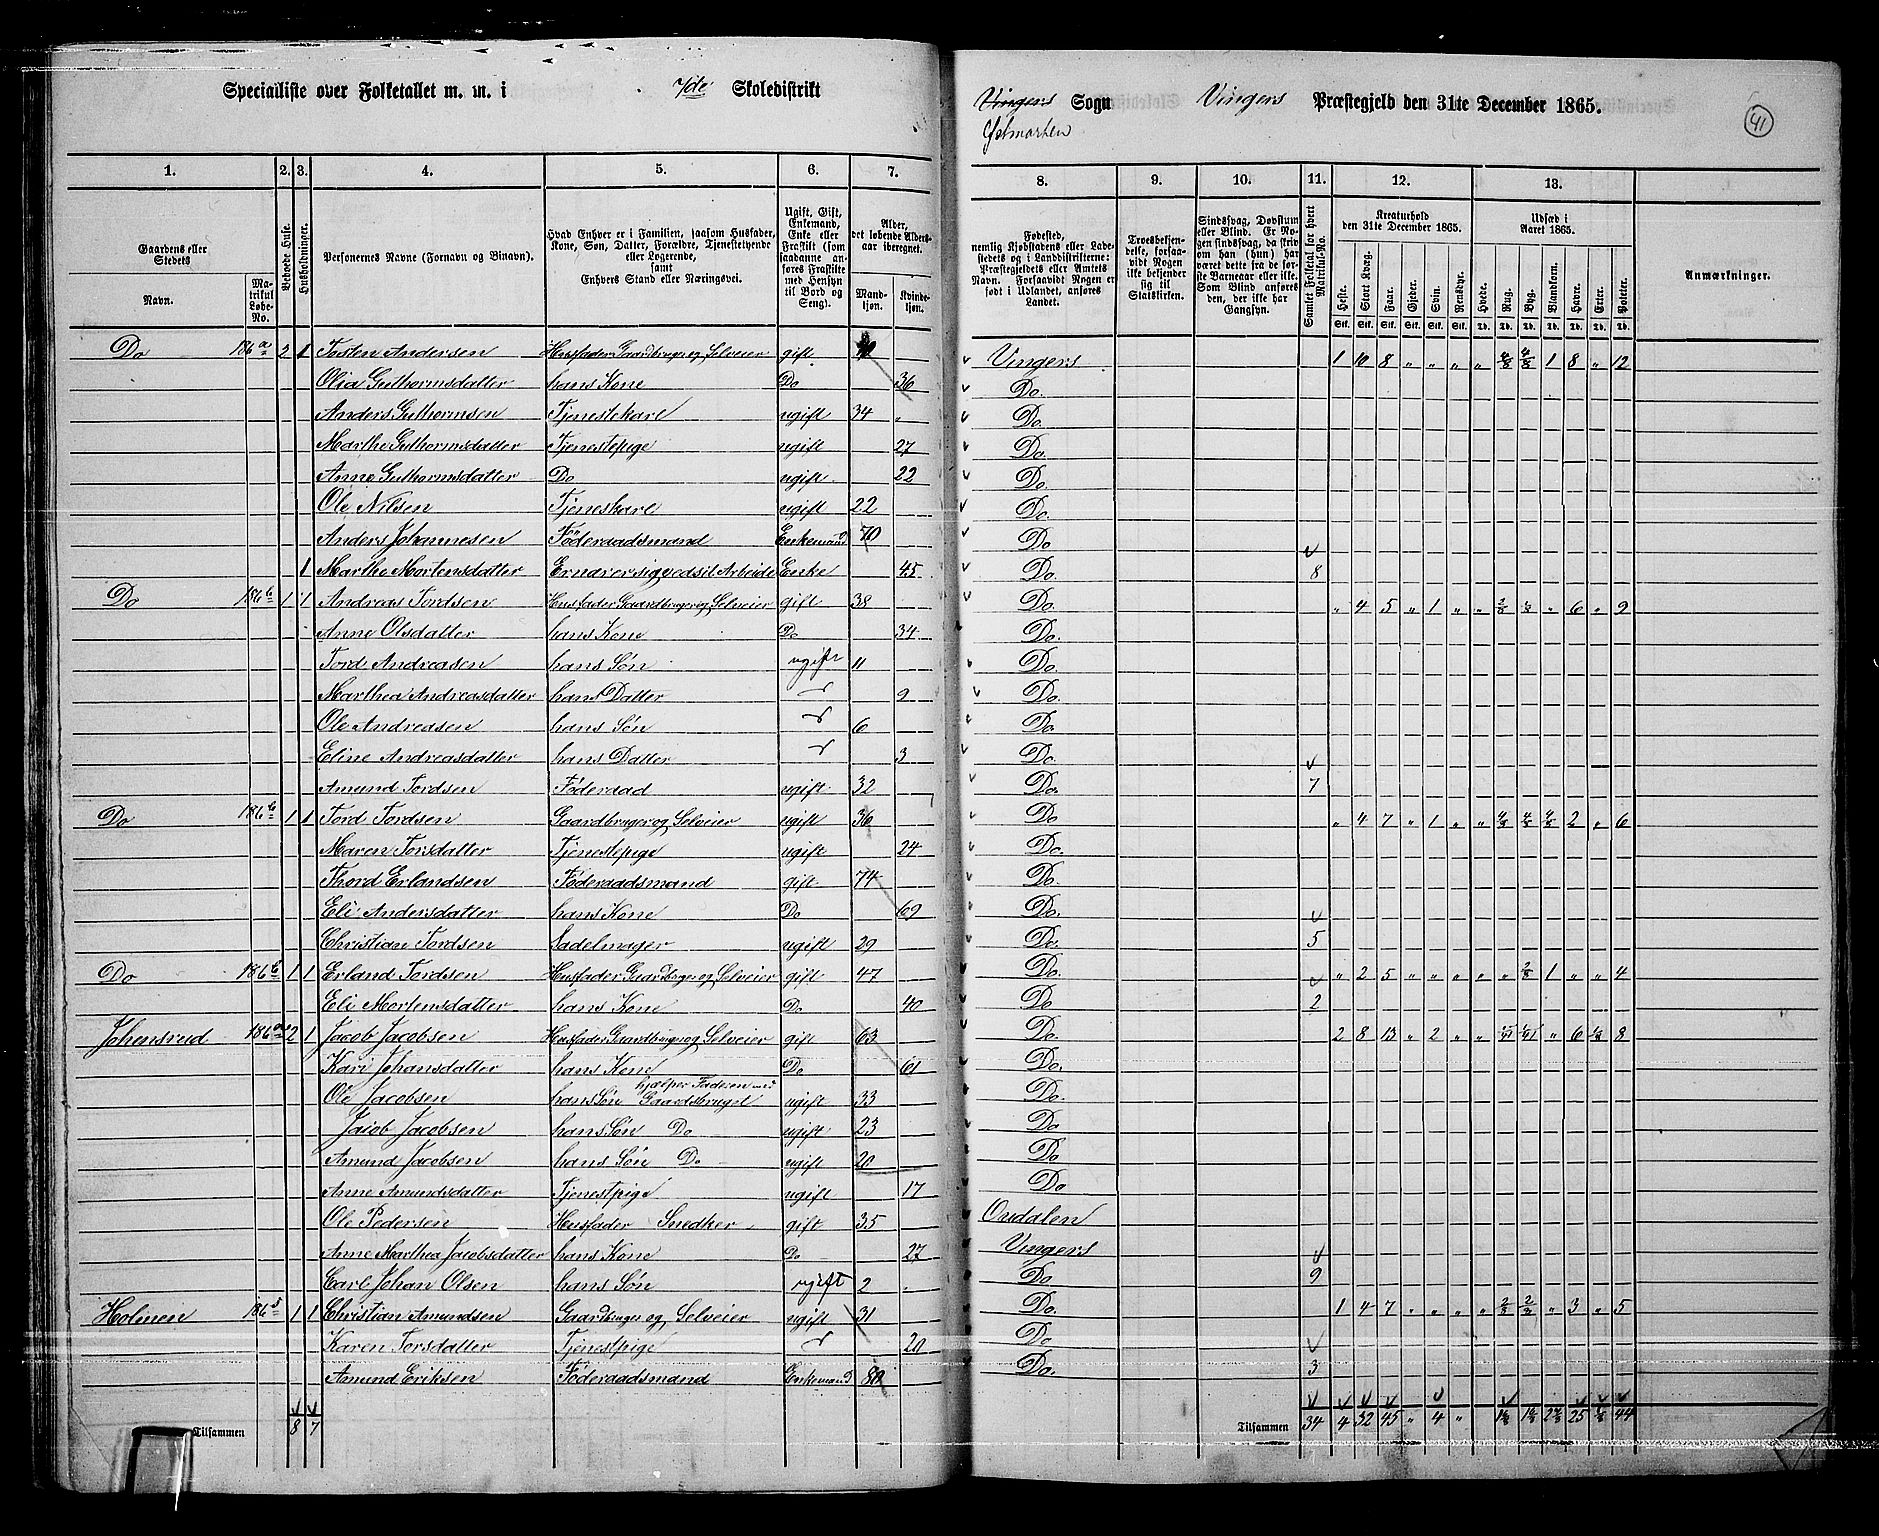 Specialliste over Folketallet m. m. i 7de Skoledistrikt Vingers Sogn Vingers Præstegjeld den 31te December 1865.
41
1. 2. 3. 4. 5. 6. 7. 8. 9. 10. 11. 12. 13.
Gaardens eller Stedets
Navn.
Matrikul Løbe-No.
Beboede Huse.
Husholdninger.
Personernes Navne (Fornavn og Binavn).
Hvad Enhver er i Familien, saasom Husfader, Kone, Søn, Datter, Forældre, Tjenestetyende eller Logerende, samt Enhvers Stand eller Næringsvei.
Ugift, Gift, Enkemand, Enke eller Fraskilt (som saadanne anføres Fraskilte med Hensyn til Bord og Seng).
Alder, det løbende Aldersaar iberegnet.
Mandkjøn.
Kvindekjøn.
Fødested, nemlig Kjøbstadens eller Ladestedets og i Landdistrikterne: Præstegjeldets eller Amtets Navn. Forsaavidt Nogen er født i Udlandet, anføres Landet.
Troesbekjendelse, forsaavidt Nogen ikke bekjender sig til Statskirken.
Sindssvag, Døvstum eller Blind. Er Nogen sindssvag, da skriv om han (hun) har været dette fra de første Barneaar eller ikke. Som Blind anføres den, der ikke har Gangsyn.
Samlet Folketal for hvert Matrikul-No.
Kreaturhold den 31te December 1865.
Heste. Stort Kvæg. Faar. Gjeder. Svin. Rensdyr.
Udsæd i Aaret 1865.
Hvede. Rug. Byg. Blandkorn. Havre. Erter. Poteter.
Anmærkninger.
Do 186a 2 1 Torsten Andersen Husfader Gaardbruger og Selveier gift 40 Vingers 1 10 8 " " " " 4/8 4/8 1 8 " 12
Olia Guthormsdatter hans Kone Do 36 Do.
Anders Guthormsen Tjenestekarl ugift 34 " Do.
Marthe Guthormsdatter Tjenestepige ugift 27 Do.
Anne Guthormsdatter Do ugift 22 Do.
Ole Nilsen Tjenesekarl ugift 22 Do.
Anders Johannesen Föderaadsmand Enkemand 70 Do
1 Marthe Mortensdatter Ernærer sig ved sit Arbeide Enke 45 Do. 8
Do 186b 1 1 Andreas Tordsen Husfader Gaardbruger og Selveier gift 38 Do. " 4 5 " 1 " " " 6 " 9
Anne Olsdatter hans Kone Do 34 Do.
Tord Andreasen hans Søn ugift 11 Do.
Marthea Andreasdatter hans Datter 9 Do.
Ole Andreasen hans Søn 6 Do.
Eline Andreasdatter hans Datter 3 Do.
Amund Tordsen Föderaad ugift 32 Do. 7
Do 186 1 1 Tord Tordsen Gaardbruger og Selveier ugift 36 Do " 4 7 " 1 " " 4/8 4/8 4/8 2 " 6
Maren Torsdatter Tjenestepige ugift 24 Do.
Thord Erlandsen Föderaadsmand gift 74 Do.
Eli Andersdatter hans Kone Do 69 Do.
Christian Tordsen Sadelmager ugift 29 Do. 5
Do 186 1 1 Erland Tordsen Husfader Gaardbruger og Selveier gift 47 Do. " 2 5 " " " " " 2/8 1 " " 4
Eli Mortensdatter hans Kone Do 40 Do 2
Johensrud 186 2 1 Jacob Jacobsen Husfader Gaardbruger og Selveier gift 63 Do. 2 8 13 " 2 " " " 6 8
Kari Johansdatter hans Kone Do 61 Do.
Ole Jacobsen hans Søn hjælper Faderen med Gaardsbruget ugift 33 Do.
Jacob Jacobsen hans Søn Do ugift 23 Do
Amund Jacobsen hans Søn Do ugift 20 Do
Anne Amundsdatter Tjenestpige ugift 17 Do
Ole Pedersen Husfader Snedker gift 35 Oudalen
Anne Marthea Jacobsdatter hans Kone Do 27 Vingers
Carl Johan Olsen hans Søn ugift 2 " Do 9
Holmen 186 1 1 Christian Amundsen Gaardbruger og Selveier ugift 31 Do. 1 4 7 " " " " 2/8 2/8 " 3 " 5
Karen Torsdatter Tjenestpige 20 Do
Amund Eriksen Föderaadsmand Enkemand 80 Do. 3
Tilsammen 8 7 Tilsammen 34 4 32 45 " 4 " 25 44